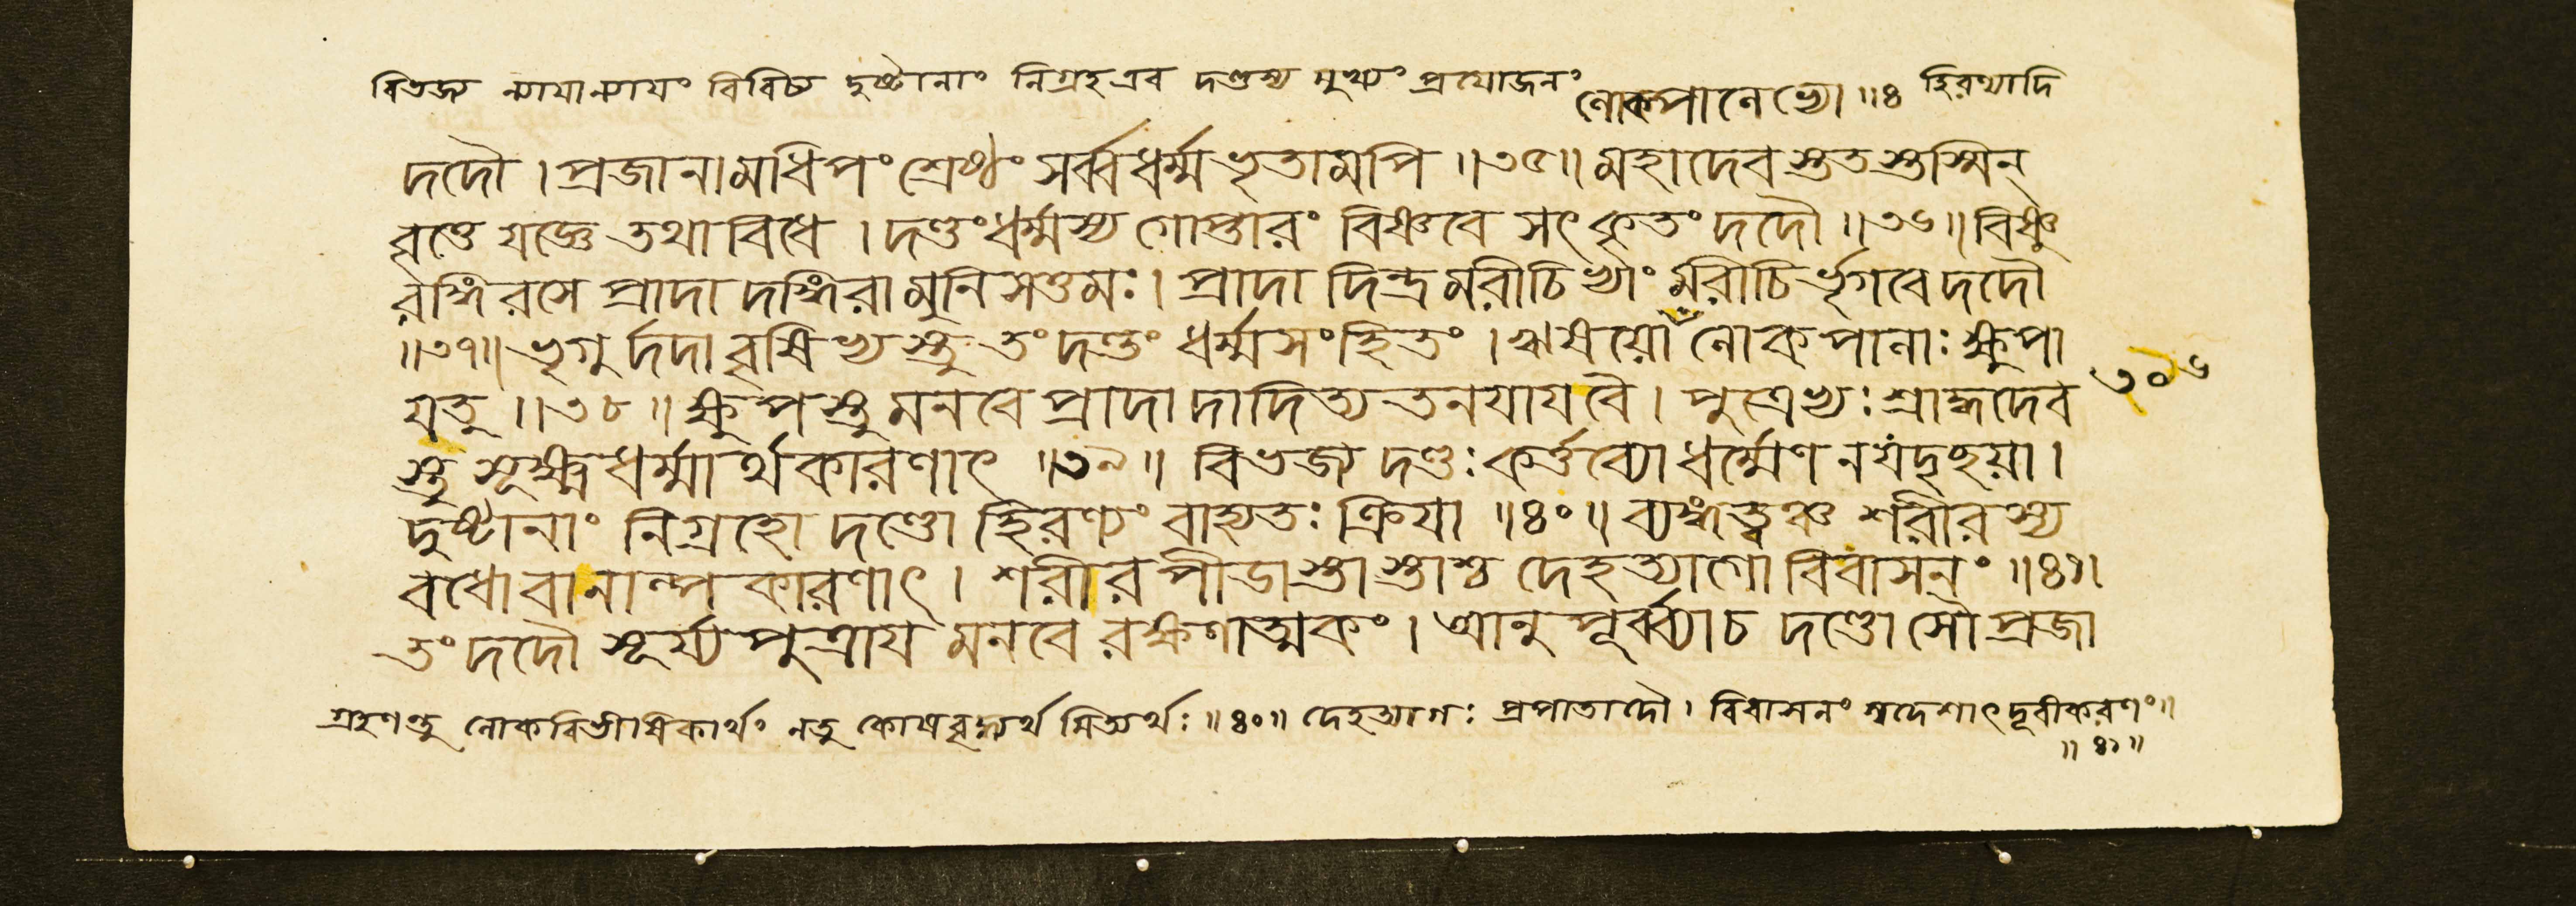 বিভজ্য ন্যায়ান্যায়ং বিবিচ্য দুষ্টানাং নিগ্রহএব দণ্ডস্য মুখ্যং প্রযোজনং লোকপালেভ্যো ॥৪ হিরণ্যাদি
দদৌ । প্রজানামধিপং শ্রেষ্ঠং সর্ব্বধর্ম্মভৃতামপি ॥৩৫॥ মহাদেবস্ততস্তস্মিন্
বৃত্তে যজ্ঞে তথাবিধে । দণ্ডং ধর্ম্মস্য গোপ্তারং বিষ্ণবে সৎকৃতং দদৌ ॥৩৬॥ বিষ্ণু
রঙ্গিরসে প্রাদাদঙ্গিরা মুনিসত্তমঃ । প্রাদাদিন্দ্রমরীচিভ্যাং মরীচির্ভৃগবে দদৌ
॥৩৭॥ ভৃগুর্দদাবৃষিভ্যস্তু তং দণ্ডং ধর্ম্মসংহিতং । ঋষয়ো লোকপালাঃ ক্ষুপা
যতু ॥৩৮॥ ক্ষুপস্তু মনবে প্রাদাদাদিত্যতনযাযবৈ । পুত্রেভ্যঃ শ্রাদ্ধদেব ৩০৬
স্তু সূক্ষ্মধর্ম্মার্থকারণাৎ ॥৩৯॥ বিভজ্য দণ্ডঃ কর্ত্তব্যো ধর্ম্মেণ নযদৃচ্ছয়া ।
দুষ্টানাং নিগ্রহো দণ্ডো হিরণ্যং বাহ্যতঃ ক্রিযা ॥৪০॥ ব্যঙ্গত্বঞ্চ শরীরস্য
বধোবানাল্পকারণাৎ । শরীরপীডাস্তাস্তাশ্চ দেহত্যাগো বিবাসনং ॥৪১।
তং দদৌ সূর্য্যপুত্রায মনবে রক্ষণাত্মকং । আনুপূর্ব্ব্যাচ দণ্ডোসৌ প্রজা
গ্রহণন্তু লোকবিভীষিকার্থং নতু কোষবৃদ্ধ্যর্থমিত্যর্থঃ ॥৪০॥ দেহত্যাগঃ প্রপাতাদৌ । বিবাসনং স্বদেশাৎ দূরীকরণং॥
॥ ৪১ ॥